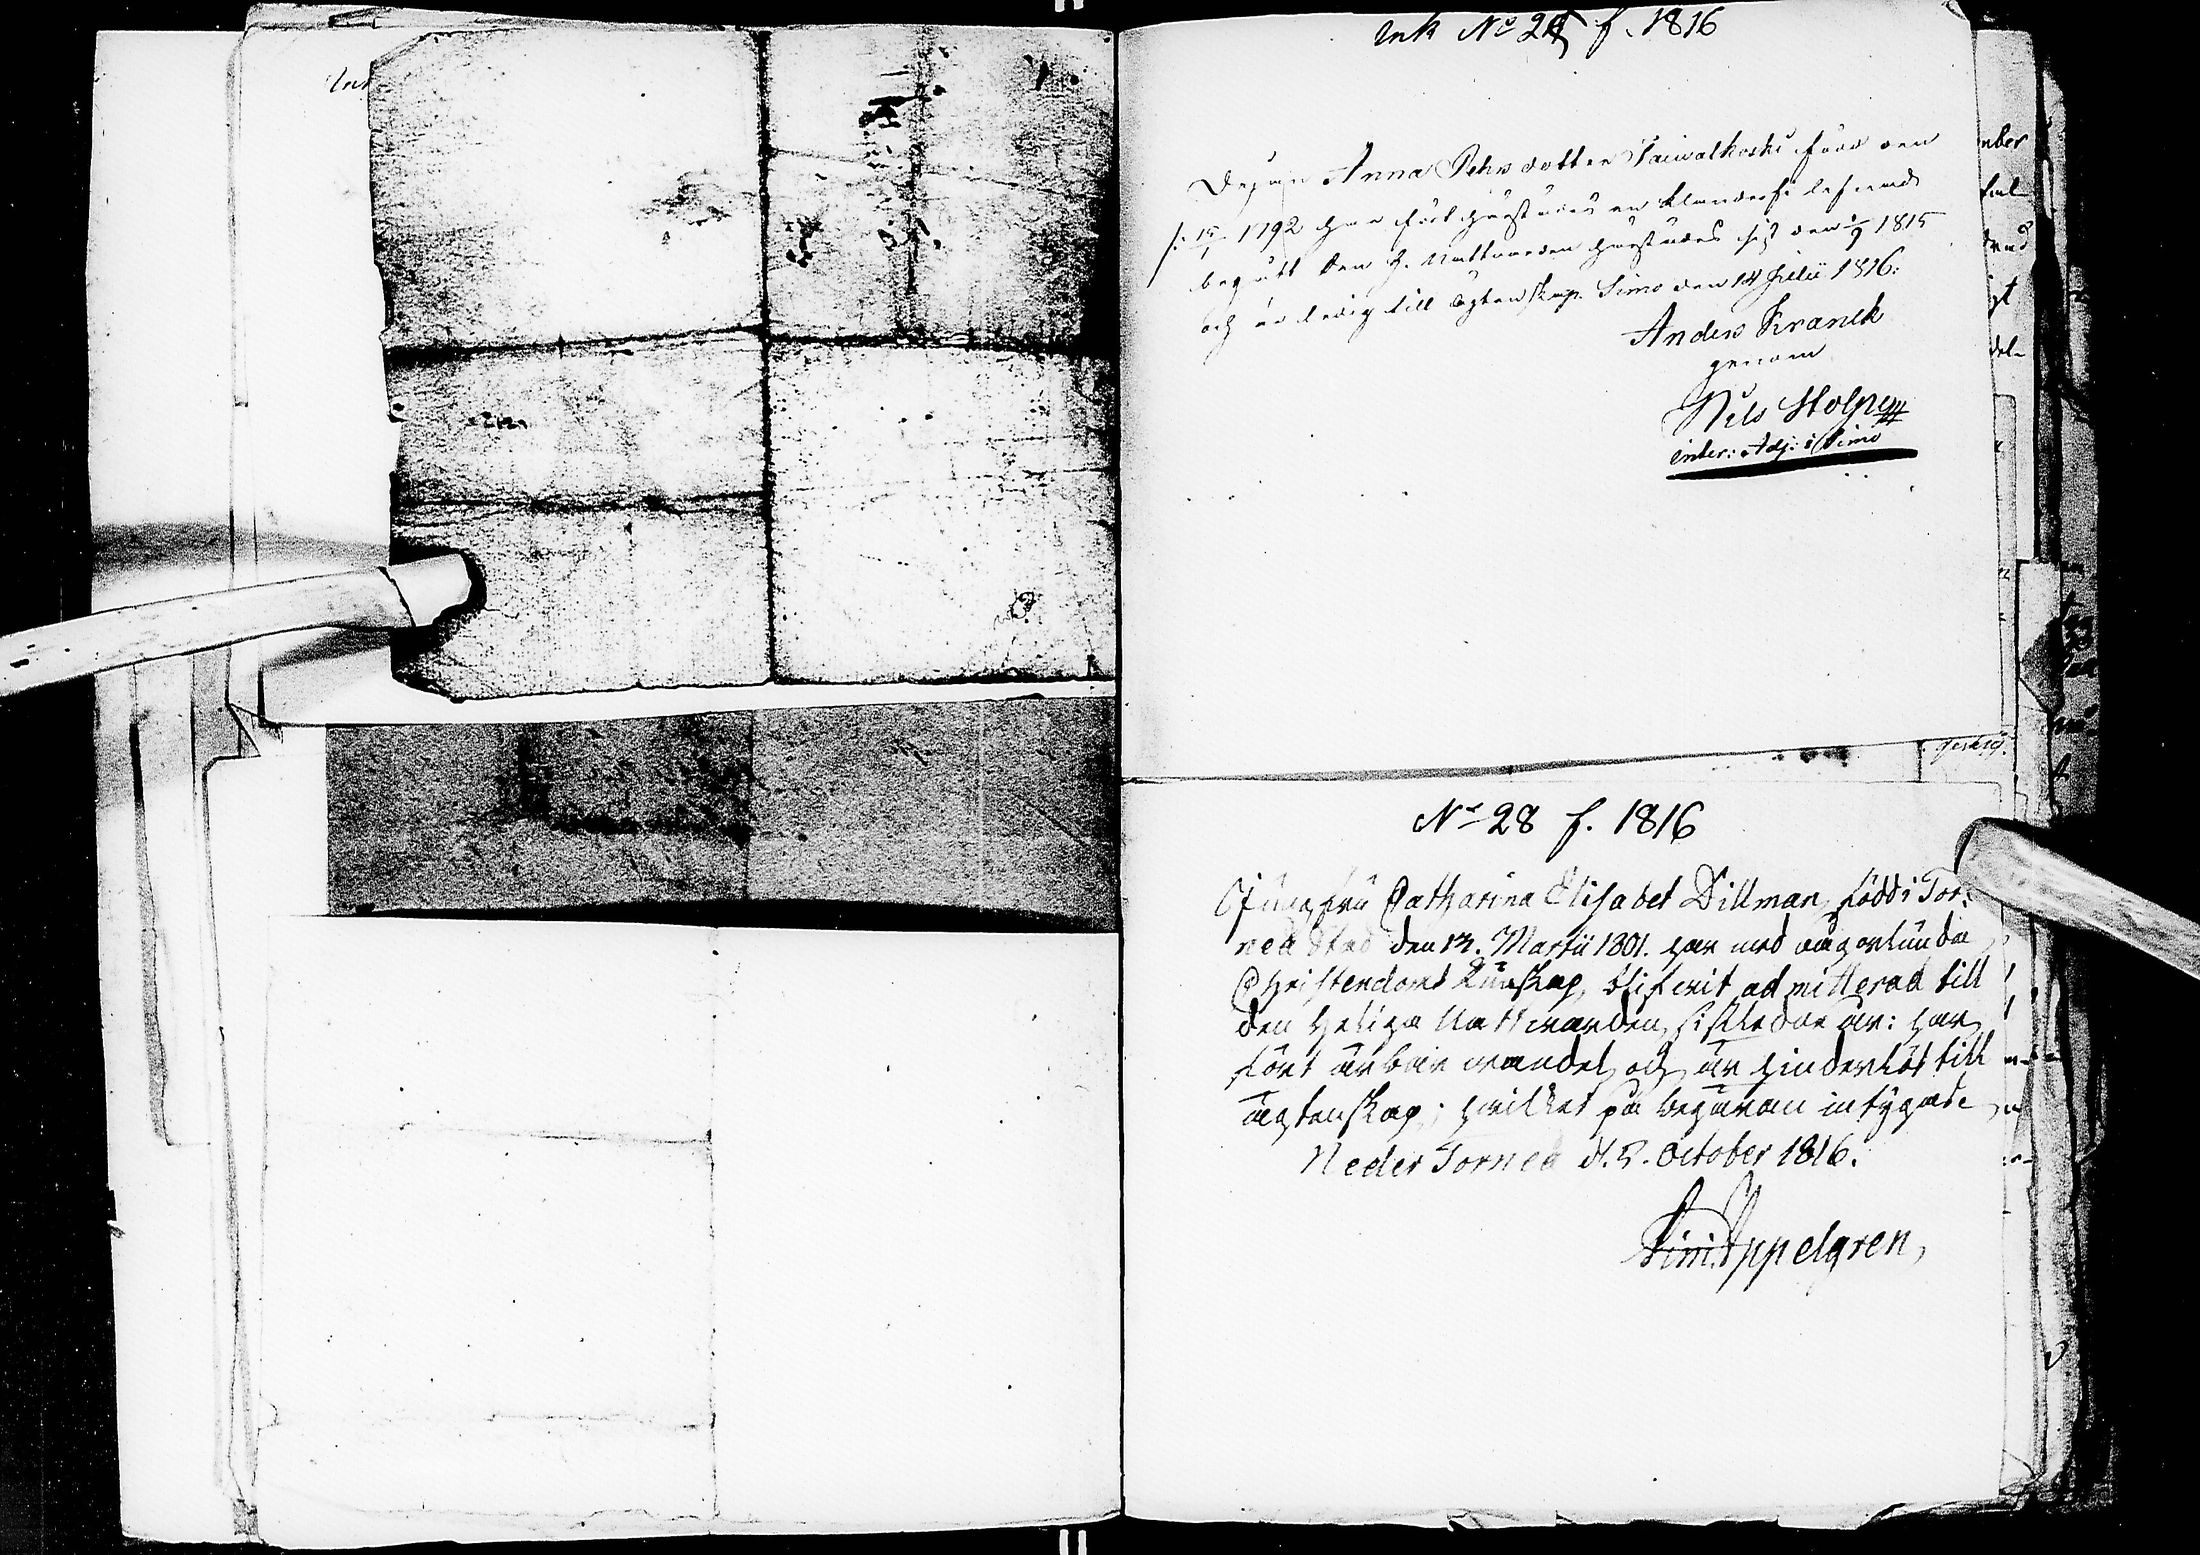 Ink No 24 f. 1816
Pigan Anna Pehrsdotter Taiwalkoski född den
15 1792 har
begått den H. Nattvarden sist den 1/9 1815
och är ledig till ägtenskap. Simo den 14 Julii 1816.
Anders Kranck
genom
Nils Stolpe
inter: Adj: i Simo
No 28 f. 1816
Jungfru Catharina Elisabet Dillman, född i Tor:
neå Stad den 13. Martii 1801. har med någorlunda
Christendoms Kunskap, blifwit admitterad till
den heliga Nattwarden, sistledne år: har
fört ärbar wandel, och är hinderlös till
ägtenskap; hwilket på begäran intygade
Neder Torneå d. 5. October 1816.
Sim. Appelgren,